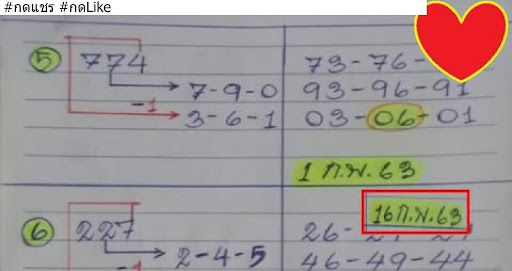 #กดแชร #กดLike
5 774 73-76-
7-9-0 93-96-91
-1 3-6-1 03-06-01
1 ก.พ. 63
16 ก.พ. 63
6 227 26-
2-4-5 46-49-44
-1